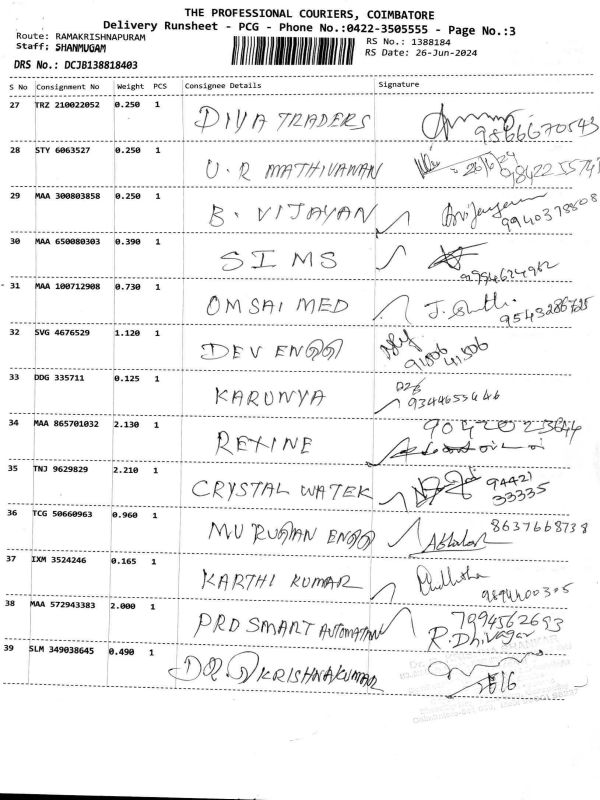 THE PROFESSIONAL COURIERS, COIMBATORE
Delivery Runsheet - PCG - Phone No.:0422-3505555 - Page No.:3
Route: RAMAKRISHNAPURAM
Staff: SHANMUGAM
RS No.: 1388184
RS Date: 26-Jun-2024
DRS No.: DCJB138818403
S No Consignment No Weight PCS Consignee Details Signature
27 TRZ 210022052 0.250 1 DIYA TRADERS 9566670543
28 STY 6063527 0.250 1 U.R MATHIVANAN 26/6/24
29 MAA 300803858 0.250 1 B. VIJAYAN 9940378808
30 MAA 650080303 0.390 1 SIMS
31 MAA 100712908 0.730 1 OMSAI MED 9543286725
32 SVG 4676529 1.120 1 DEV ENGG 91506 41506
33 DDG 335711 0.125 1 KARUNYA
34 MAA 865701032 2.130 1 REXINE
35 TNJ 9629829 2.210 1 CRYSTAL WATER 94421 33335
36 TCG 50660963 0.960 1 MURUGAN ENGG 8637668738
37 IXM 3524246 0.165 1 KARTHI KUMAR
38 MAA 572943383 2.000 1 PRD SMART AUTOMATION 7994562693
R. Dhivagar
39 SLM 349038645 0.490 1 DR. G KRISHNAKUMAR